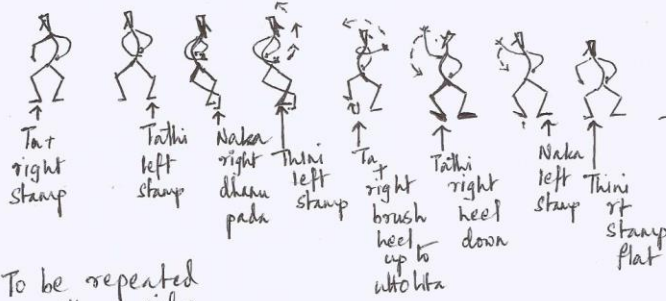 Ta +
right
stamp
Tathi
left
stamp
Naka
right
dhanu
pada
Thini
left
stamp
Ta
+
right
brush
heel
up to
uttolita
Tathi
right
heel
down
Naka
left
stamp
Thini
rt
stamp
flat
To be repeated